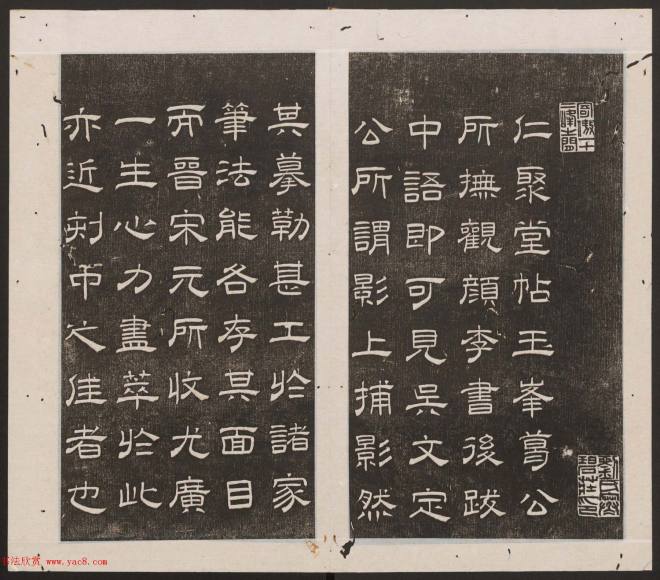 仁聚堂帖玉峯葛公
所撫觀顔李書後跋
中語即可見吳文定
公所謂影上捕影然
其摹勒甚工扵諸家
筆法能各存其面目
而晉宋元所收尤廣
一生心力盡萃扵此
亦近刻帀之佳者也
劉氏寒碧莊印
书法欣赏 www.yac8.com